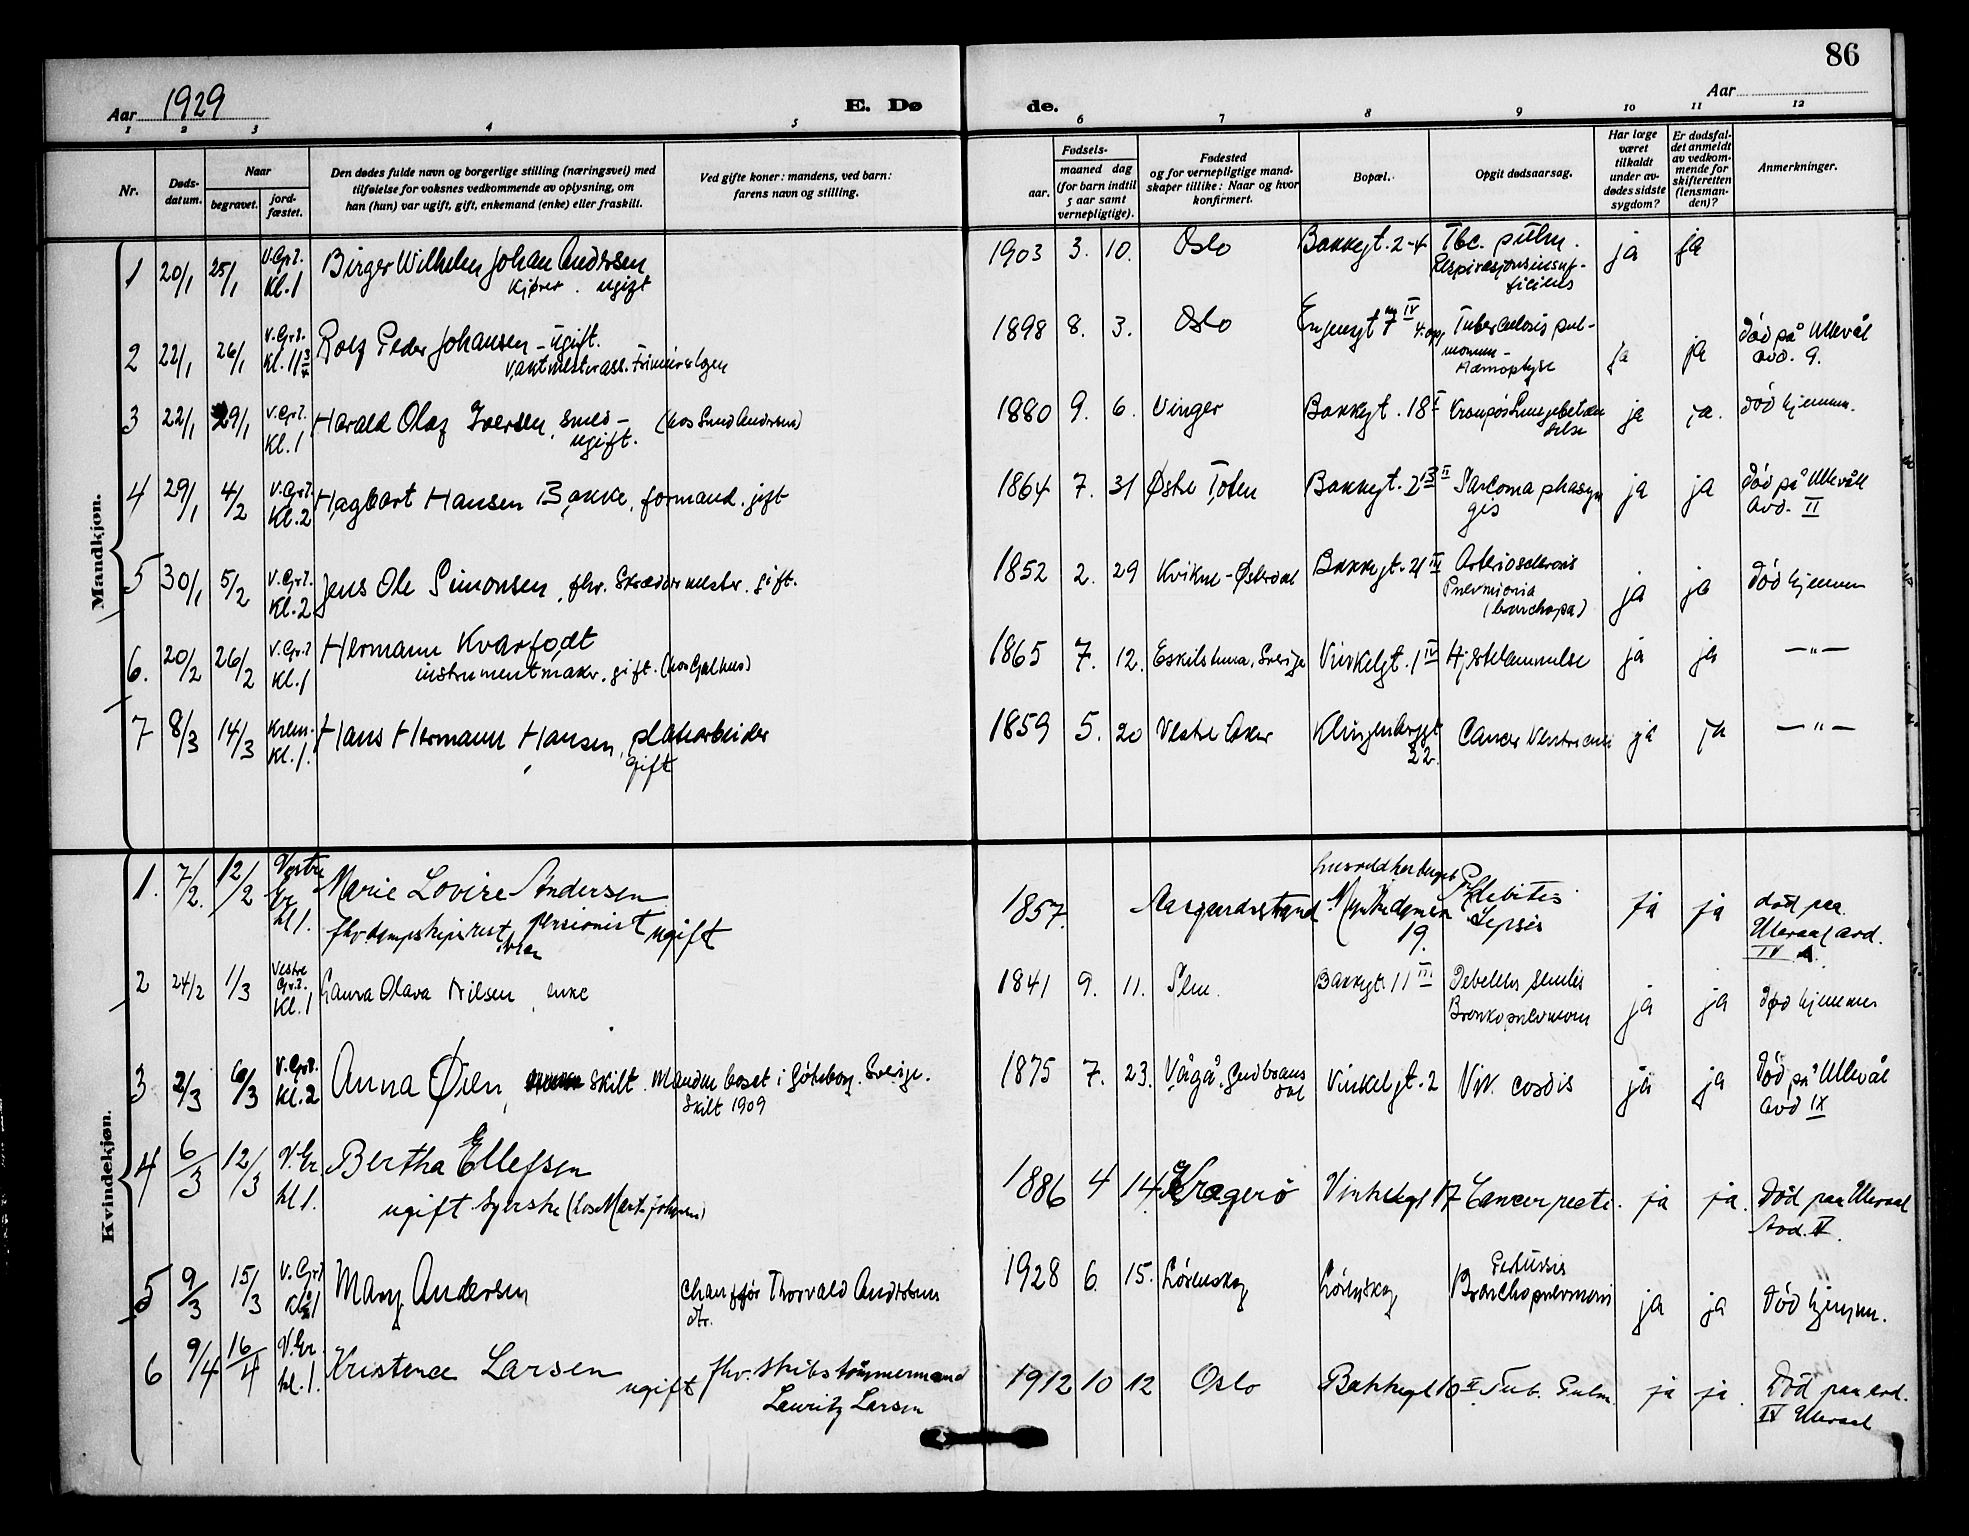 86
Aar 1929
E. Dø de.
Aar
1 2 3 4 5 6 7 8 9 10 11 12
Nr.
Døds-
datum.
Naar
begravet.
jord-
fæstet.
Den dødes fulde navn og borgerlige stilling (næringsvei) med
tilføielse for voksnes vedkommende av oplysning, om
han (hun) var ugift, gift, enkemand (enke) eller fraskilt.
Ved gifte koner: mandens, ved barn:
farens navn og stilling.
Fødsels-
aar.
maaned dag
(for barn indtil
5 aar samt
vernepligtige).
Fødested
og for vernepligtige mand-
skaper tillike: Naar og hvor
konfirmert.
Bopæl.
Opgit dødsaarsag.
Har læge
været
tilkaldt
under av-
dødes sidste
sygdom?
Er dødsfal-
det anmeldt
av vedkom-
mende for
skifteretten
(lensman-
den)?
Anmerkninger.
Mandkjøn.
1 20/1 25/1 V.Grl. Kl.1 Birger Wilhelm Johan Andersen 1903 3. 10. Oslo Bakkegt. 2-4 Tbc. pulm. ja ja
kjører. ugift
2 22/1 26/1 V.Grl. Rolf Peder Johansen - ugift. 1898 8. 3. Oslo Engengt 7 IV Tuberculosis pul- ja ja Død på Ullevål
vaktmesterass. Frimurerlogen monum - Hæmoptyse avd. 9.
3 22/1 29/1 V.Grl. Kl.1 Harald Olaf Iversen, smed - (hos Lund Andersen) 1880 9. 6. Vinger Bakkegt. 18 I ja ja. død hjemme.
ugift.
4 29/1 4/2 V.Grl. Kl.2 Hagbart Hansen Bakke, formand. gift 1864 7. 31 Østre Toten Bakkegt. Sarcoma ja ja Død på Ullevål
Avd. II
5 30/1 5/2 V.Grl. Kl.2 Jens Ole Simonsen, fhv. Skreddermester. gift. 1852 2. 29 Kvikne - Østerdal Bakkegt. 21 III Arteriosclerosis ja ja Død hjemme
Pnevmonia
6. 20/2 26/2 V.Grl Kl.1 Hermann Kvarfodt 1865 7. 12. Eskilstuna, Sverige Vinkelgt. 1 IV Hjertelammelse ja ja — " —
instrumentmaker, gift.
7 8/3 14/3 Krem. Kl.1. Hans Hermann Hansen, platearbeider 1859 5. 20 Vestre Aker Klingenberggt Cancer Ventriculi ja ja — " —
gift 22.
Kvindekjøn.
1. 7/2. 12/2 Vestre Gr kl 1. Marie Lovise Andersen 1857. Aasgaardsstrand Phlebitis ja ja død paa
pensionist ugift 19. Sepsis Ulevaal avd.
IV A.
2 24/2 1/3 Vestre Grl. Kl.1 Laura Olava Nilsen, enke 1841 9. 11. Slm. Bakkegt. 11 III Debilitas senilis ja ja Død hjemme
Bronkopnevmoni
3 2/3 6/3 V.Grl. Kl.2 Anna Øien, skilt. Manden boset i Göteborg. Sverige. 1875 7. 23. Vågå. Gudbrans Vinkelgt. 2 Vit. cordis ja ja Død på Ullevål
Skilt 1909 dal Avd IX
4 6/3 12/3 V.Gr kl 1. Bertha Ellefsen 1886 4 14. Kragerö Vinkelgt 17 Cancer recti. ja ja. Død paa Ulevaal
ugift Syerske Avd. V.
5 9/3 15/3 V.Grl Kl 1 Mary Andersen Chauffør Thorvald Andersens 1928 6. 15. Lörenskog Lörenskog Pertussis ja ja Död hjemme.
dtr. Bronchopnevmoni
6 9/4 16/4 V.Gr. kl.1. Kristence Larsen ugift fhv. skibstømmermand 1912 10 12 Oslo Bakkegt 10 II Tub. Pulm. ja ja. Död paa avd.
Lauritz Larsen IV Ulevaal